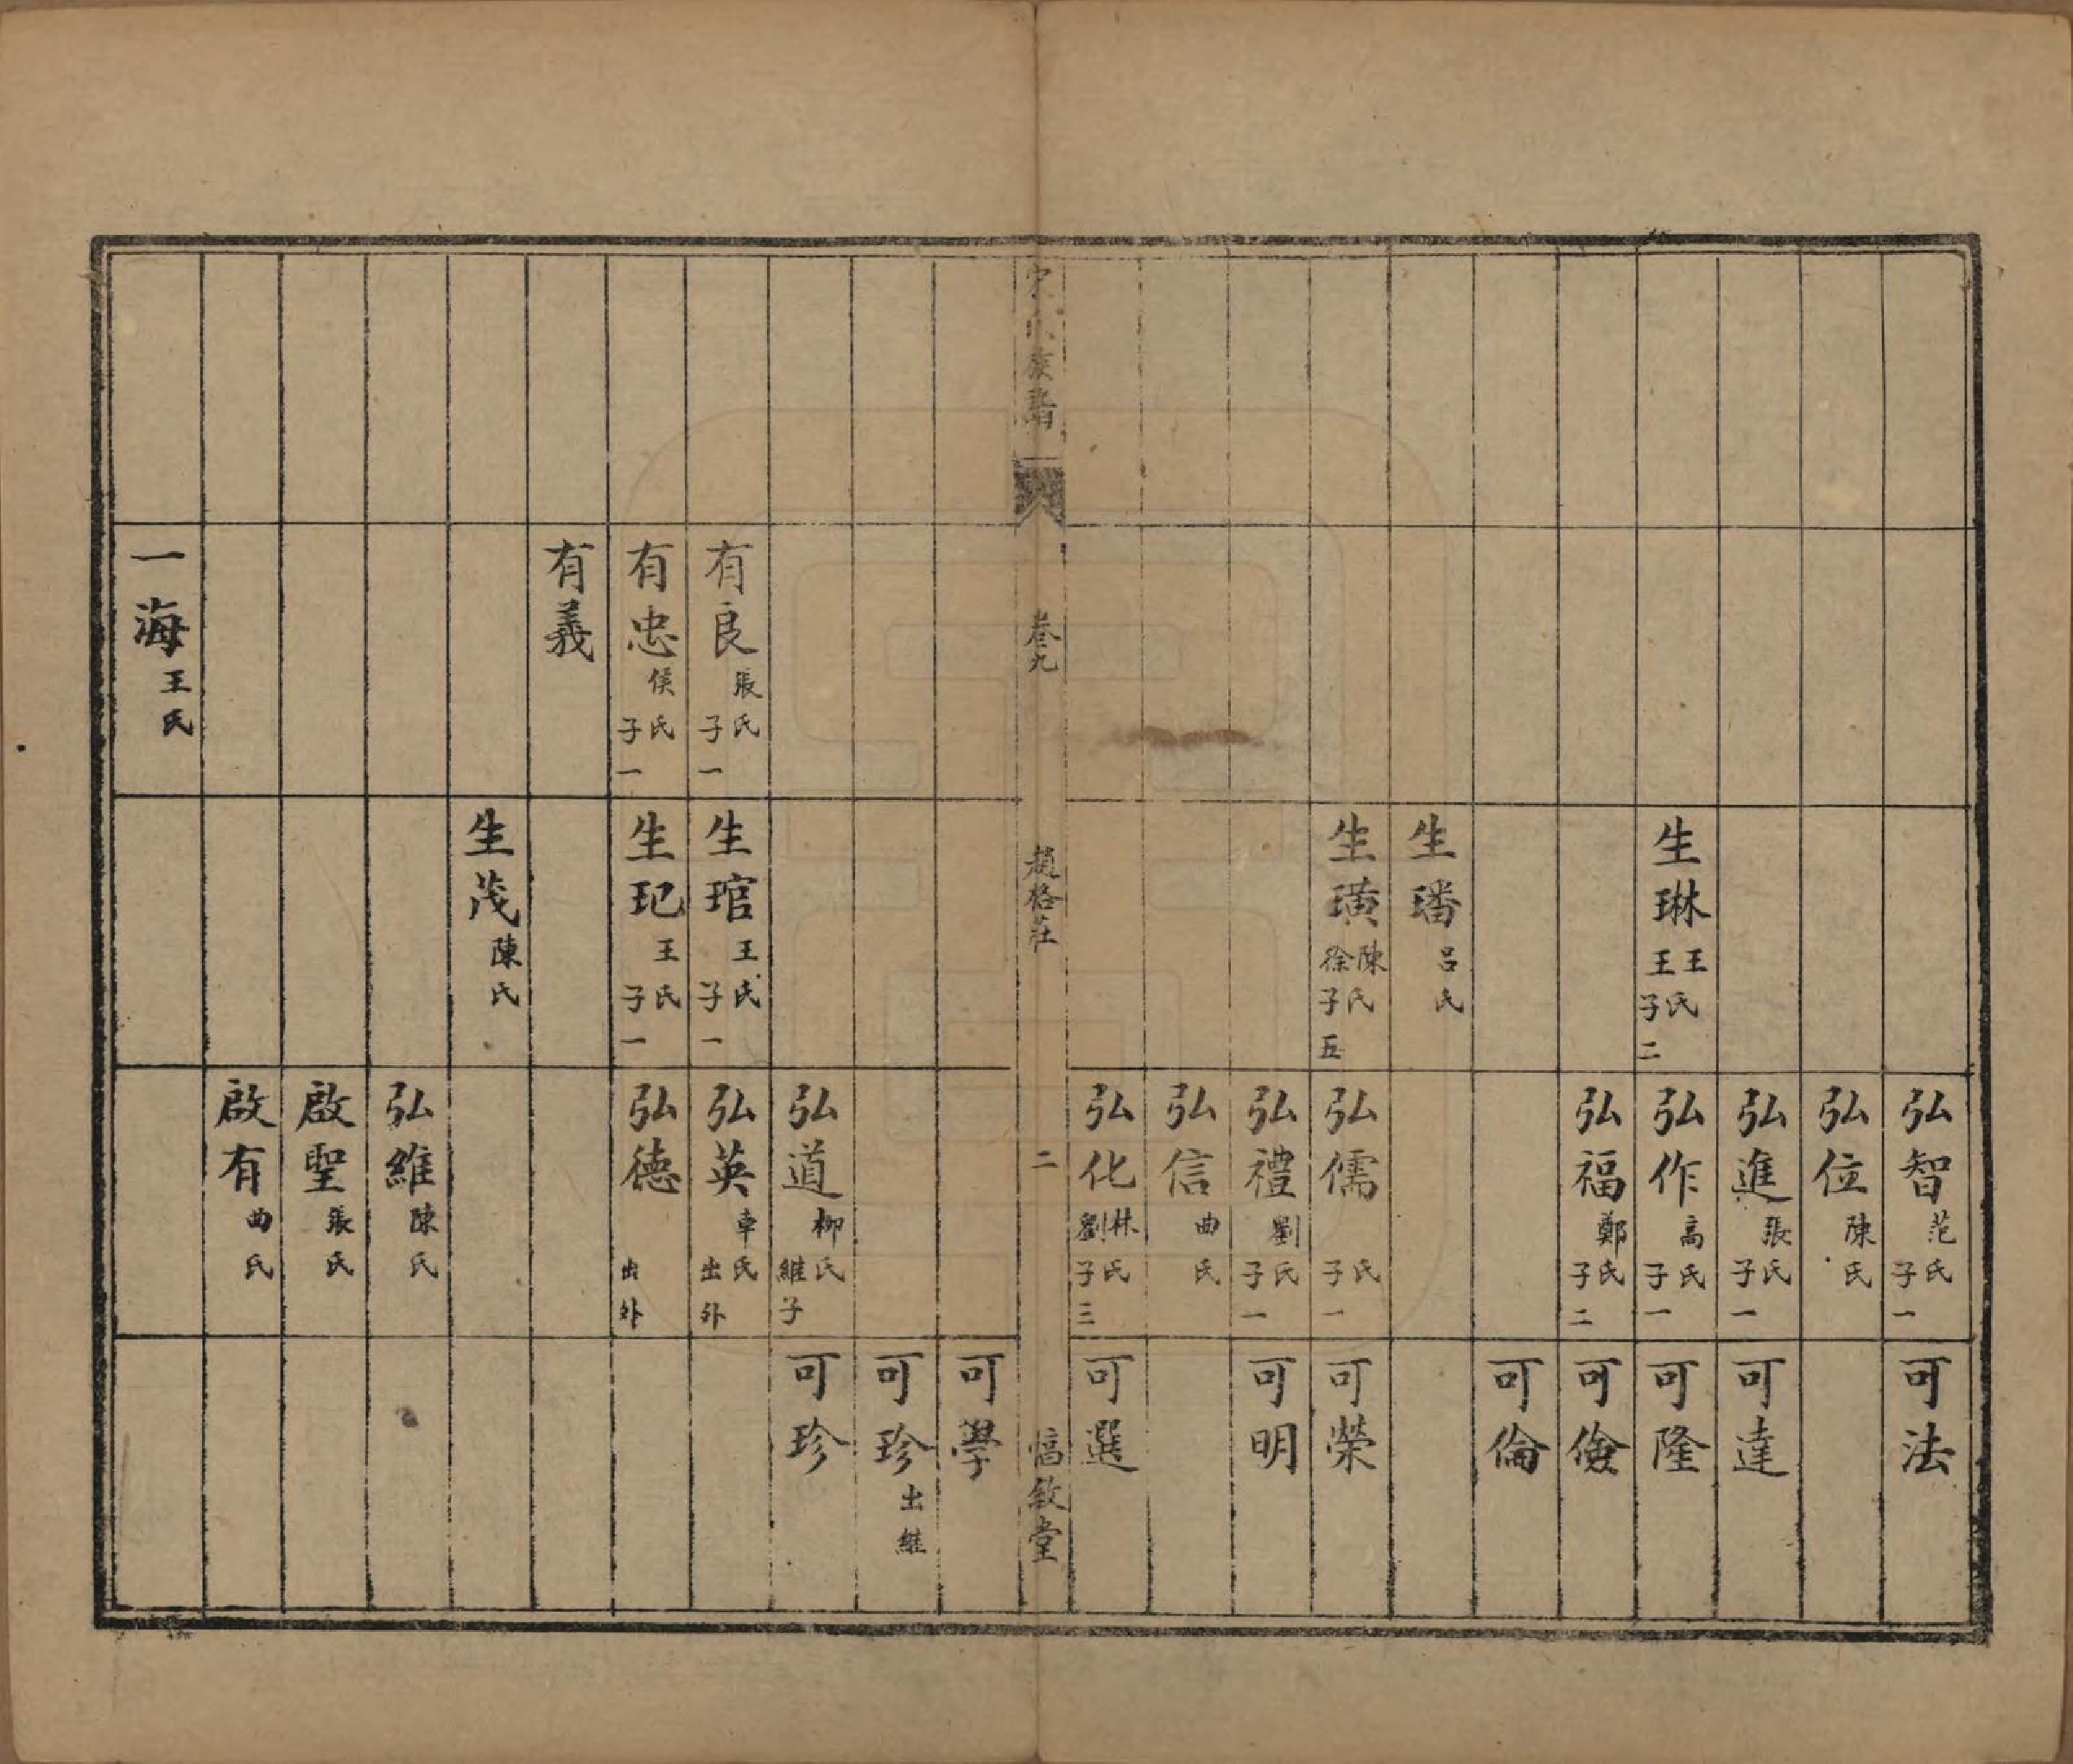 弘智 范氏 子一
可法
弘位 陳氏
弘進 張氏 子一
可達
生琳 王王氏 子二
弘作 高氏 子一
可隆
弘福 鄭氏 子二
可儉
可倫
生璠 呂氏
生璜 陳徐氏 子五
弘儒 氏 子一
可榮
弘禮 劉氏 子一
可明
弘信 曲氏
弘化 林劉氏 子三
可選
宋氏族譜 卷九 趙格莊 二 敘堂
可學
可珍 出繼
弘道 柳氏 繼子
可珍
有良 張氏 子一
生琯 王氏 子一
弘英 車氏 出外
有忠 侯氏 子一
生玘 王氏 子一
弘德 出外
有義
生茂 陳氏
弘維 陳氏
啟聖 張氏
啟有 曲氏
一海 王氏